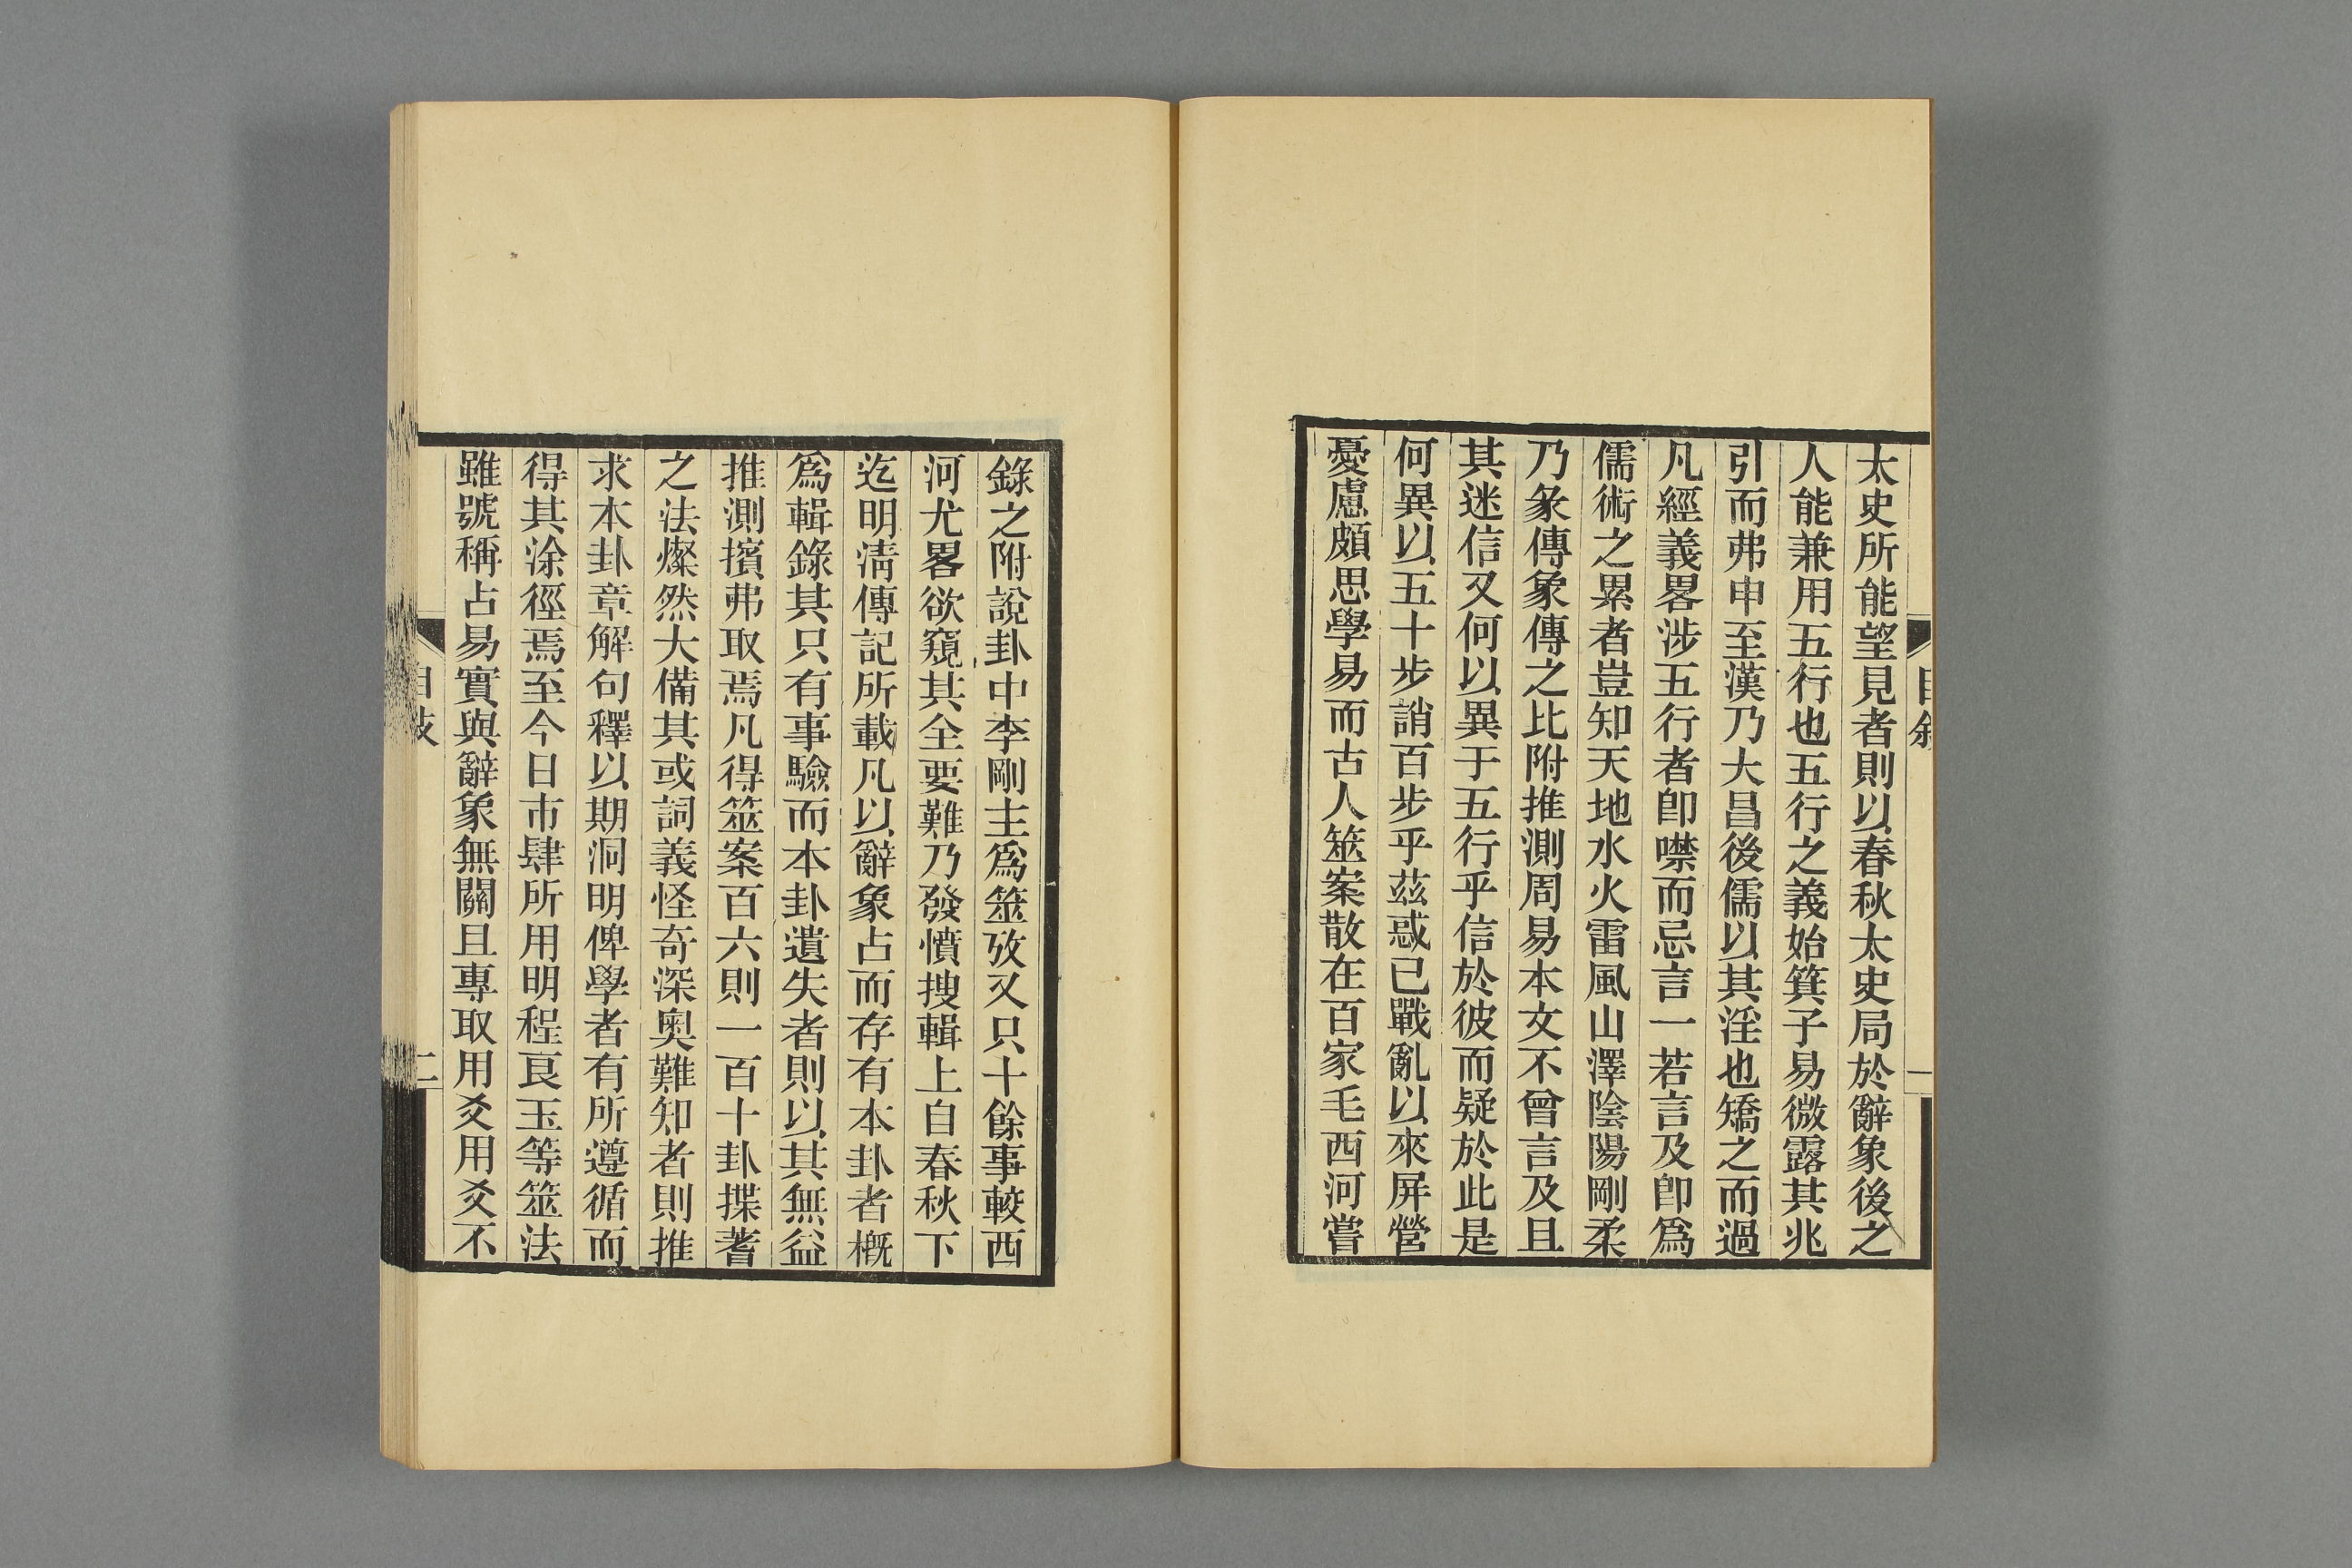 太史所能望見者則以春秋太史局於辭象後之
人能兼用五行也五行之義始箕子易微露其兆
引而弗申至漢乃大昌後儒以其淫也矯之而過
凡經義畧涉五行者卽噤而忌言一若言及卽爲
儒術之累者豈知天地水火雷風山澤陰陽剛柔
乃彖傳象傳之比附推測周易本文不曾言及且
其迷信又何以異于五行乎信於彼而疑於此是
何異以五十步誚百步乎茲惑已戰亂以來屏營
憂慮頗思學易而古人筮案散在百家毛西河嘗
自敘
一
錄之附說卦中李剛主爲筮攷又只十餘事較西
河尤畧欲窺其全要難乃發憤搜輯上自春秋下
迄明淸傳記所載凡以辭象占而存有本卦者槪
爲輯錄其只有事驗而本卦遺失者則以其無益
推測擯弗取焉凡得筮案百六則一百十卦揲蓍
之法燦然大備其或詞義怪奇深奧難知者則推
求本卦章解句釋以期洞明俾學者有所遵循而
得其涂徑焉至今日市肆所用明程良玉等筮法
雖號稱占易實與辭象無關且專取用爻用爻不
自敘
二